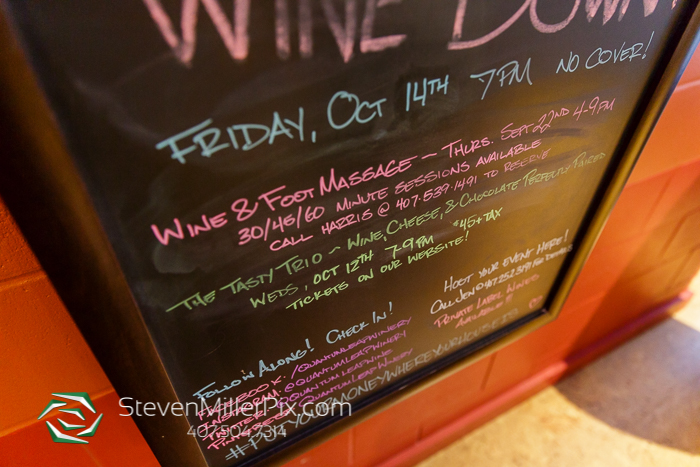 WINE DOWN!
FRIDAY, OCT 14TH 7PM NO COVER!
WINE & FOOT MASSAGE - THURS. SEPT 22ND 4-9PM
30/45/60 MINUTE SESSIONS AVAILABLE
CALL HARRIS @ 407.539.1491 TO RESERVE
THE TASTY TRIO - WINE, CHEESE, & CHOCOLATE PERFECTLY PAIRED
WEDS, OCT 12TH 7-9PM $45+TAX
TICKETS ON OUR WEBSITE!
FOLLOW ALONG! CHECK IN!
FACEBOOK: /QUANTUMLEAPWINERY
INSTAGRAM: @QUANTUMLEAPWINERY
@QUANTUMLEAPWINE
QUANTUM LEAP WINERY
#PUTYOURMONEYWHEREYOURHOUSEIS
HOST YOUR EVENT HERE!
CALL JEN @ 407.252.3191 FOR DETAILS
PRIVATE LABEL WINES
AVAILABLE!!!
StevenMillerPix.com
407.504.7314